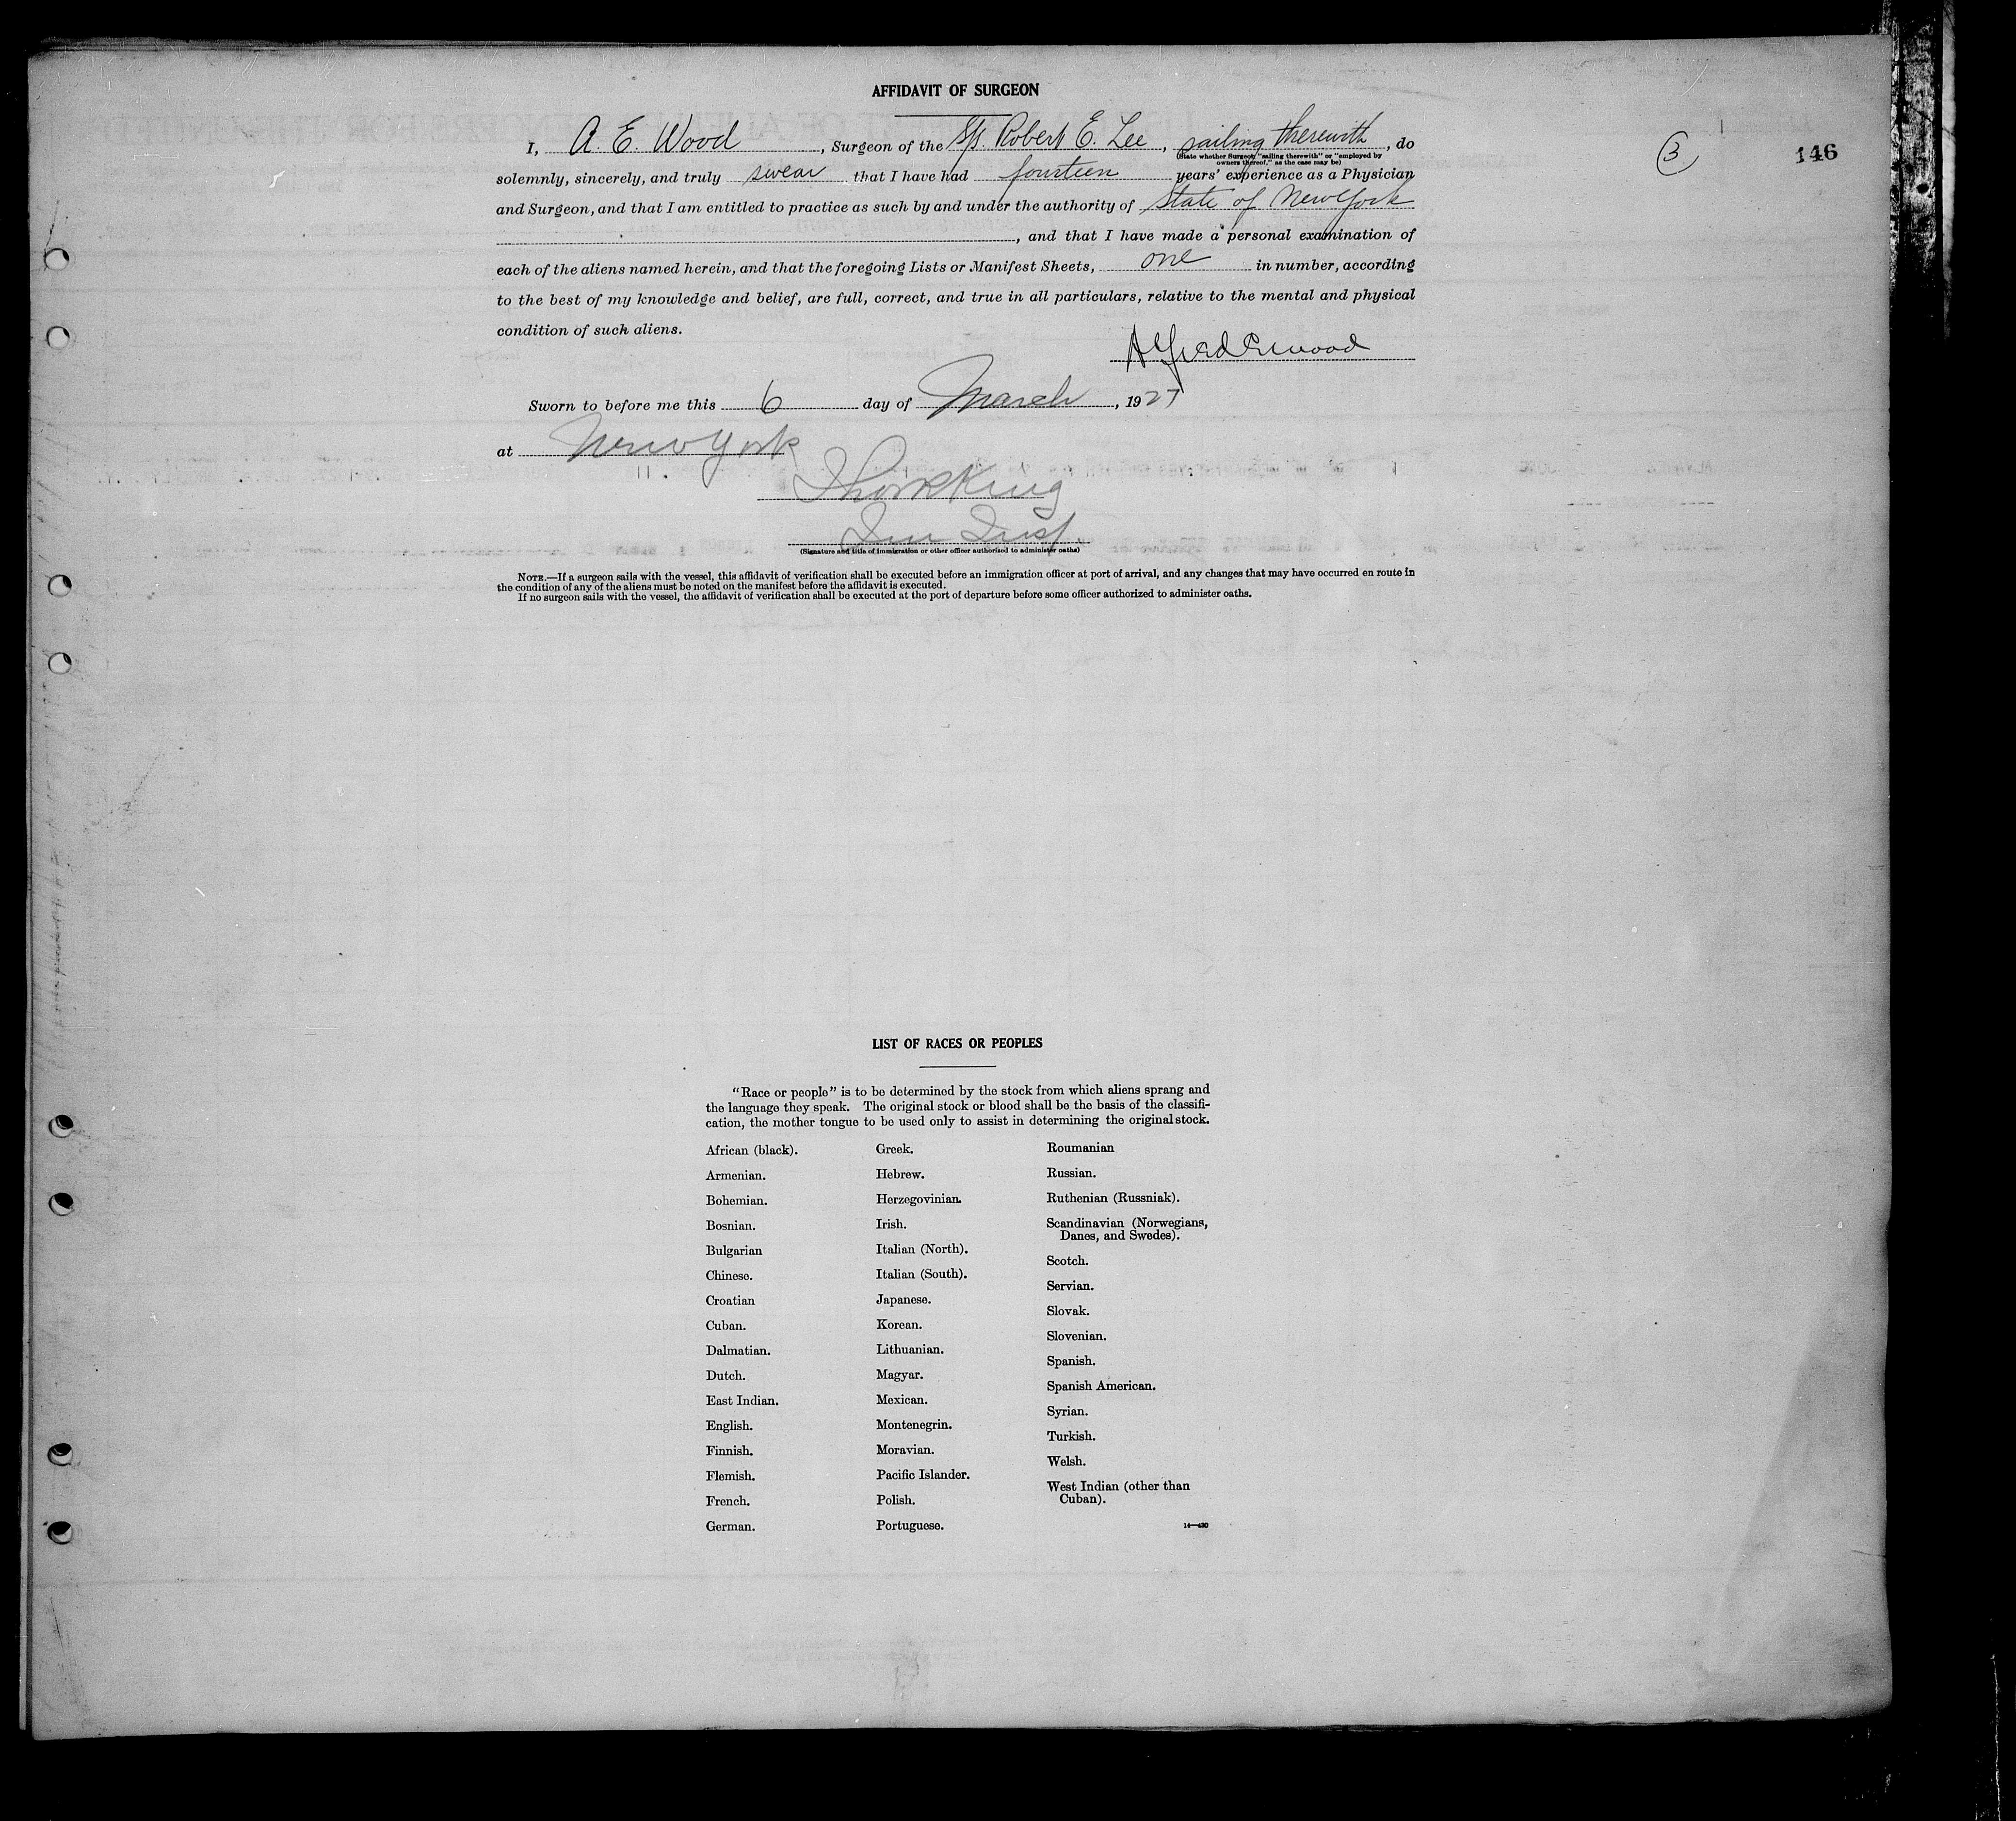 AFFIDAVIT OF SURGEON
3
146
I, A. E. Wood, Surgeon of the S/s. Robert E. Lee, sailing therewith, do
(State whether Surgeon "sailing therewith" or "employed by
owners thereof," as the case may be)
solemnly, sincerely, and truly swear that I have had fourteen years' experience as a Physician
and Surgeon, and that I am entitled to practice as such by and under the authority of State of New York
, and that I have made a personal examination of
each of the aliens named herein, and that the foregoing Lists or Manifest Sheets, one in number, according
to the best of my knowledge and belief, are full, correct, and true in all particulars, relative to the mental and physical
condition of such aliens.
Alfred E Wood
Sworn to before me this 6 day of March, 1927
at New York
King
Imm Insp.
(Signature and title of immigration or other officer authorized to administer oaths)
NOTE.—If a surgeon sails with the vessel, this affidavit of verification shall be executed before an immigration officer at port of arrival, and any changes that may have occurred en route in
the condition of any of the aliens must be noted on the manifest before the affidavit is executed.
If no surgeon sails with the vessel, the affidavit of verification shall be executed at the port of departure before some officer authorized to administer oaths.
LIST OF RACES OR PEOPLES
"Race or people" is to be determined by the stock from which aliens sprang and
the language they speak. The original stock or blood shall be the basis of the classifi-
cation, the mother tongue to be used only to assist in determining the original stock.
African (black).
Armenian.
Bohemian.
Bosnian.
Bulgarian
Chinese.
Croatian
Cuban.
Dalmatian.
Dutch.
East Indian.
English.
Finnish.
Flemish.
French.
German.
Greek.
Hebrew.
Herzegovinian.
Irish.
Italian (North).
Italian (South).
Japanese.
Korean.
Lithuanian.
Magyar.
Mexican.
Montenegrin.
Moravian.
Pacific Islander.
Polish.
Portuguese.
Roumanian
Russian.
Ruthenian (Russniak).
Scandinavian (Norwegians,
Danes, and Swedes).
Scotch.
Servian.
Slovak.
Slovenian.
Spanish.
Spanish American.
Syrian.
Turkish.
Welsh.
West Indian (other than
Cuban).
14—430